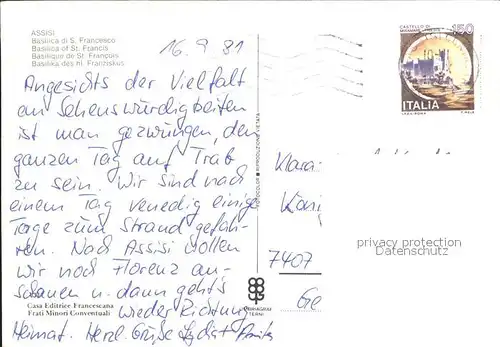 ASSISI
Basilica di S. Francesco
Basilica of St. Francis
Basilique de St. Français
Basilika des hl. Franziskus
16.9.81
Angesichts der Vielfalt
an Sehenswürdigkeiten
ist man gezwungen, den
ganzen Tag auf Trab
zu sein. Wir sind nach
einem Tag Venedig einige
Tage zum Strand gefah-
ren. Nach Assisi wollen
wir noch Florenz an-
schauen u. dann geht's
wieder Richtung
Heimat. Herzl. Grüße
Casa Editrice Francescana
Frati Minori Conventuali
RIPRODUZIONE VIETATA
TERNI
CASTELLO DI
150
ITALIA
Klara
7407
Ge
privacy protection
Datenschutz